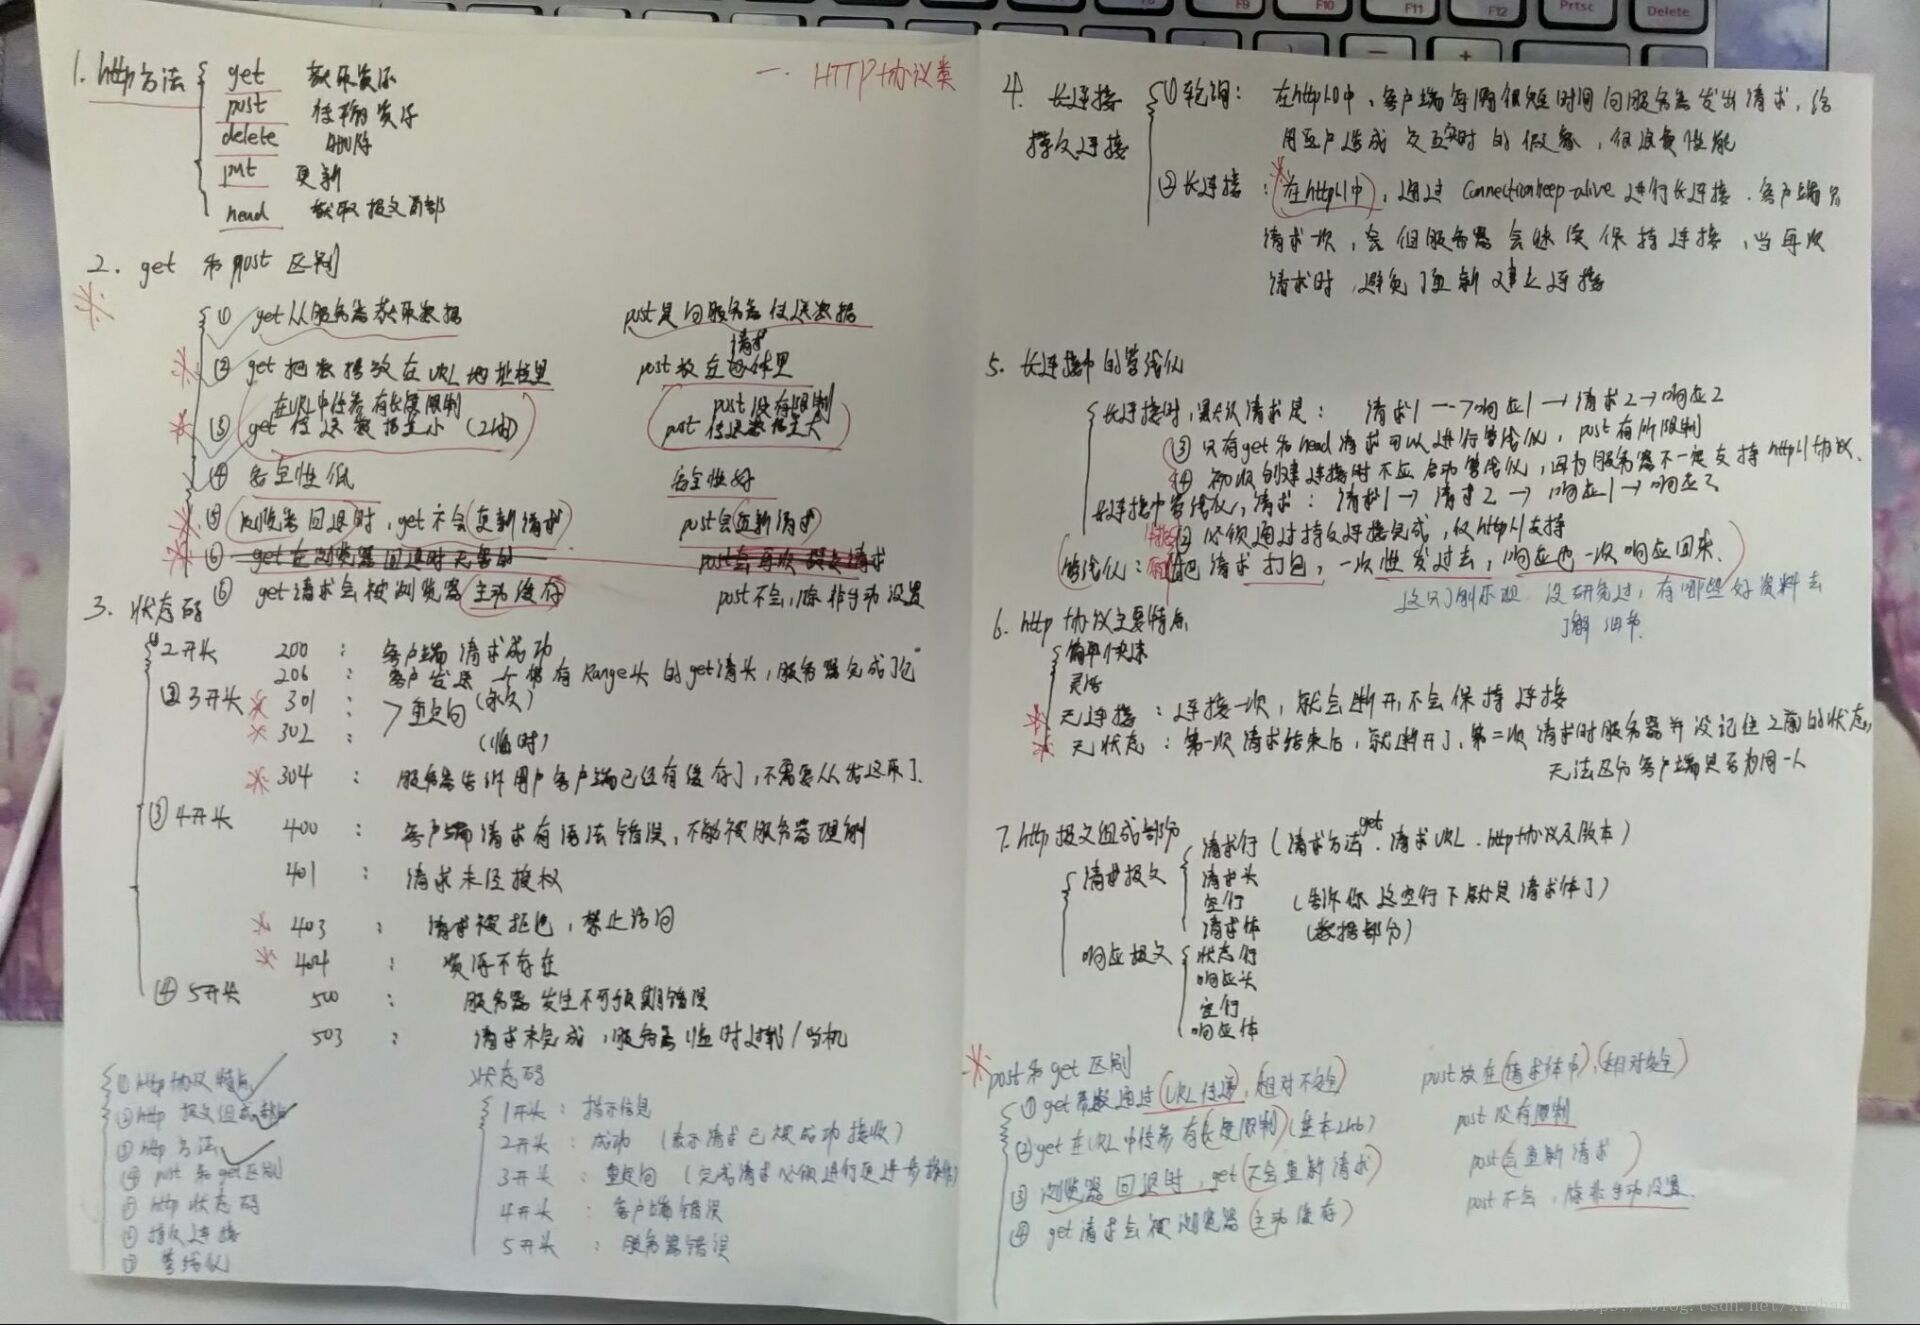 一. HTTP协议类
1. http方法
get 获取资源
post 传输资源
delete 删除
put 更新
head 获取报文首部
2. get 和 post 区别
① get从服务器获取数据 post是向服务器传送数据
② get 把数据放在URL地址栏里 post放在请求体里
在URL中传参有长度限制 post没有限制
③ get传送数据量小 (2kb) post传送数据量大
④ 安全性低 安全性好
⑤ 浏览器回退时,get不会更新请求 post会重新请求
⑥ get在浏览器回退时无害的 post会再次提交请求
⑥ get请求会被浏览器主动缓存 post不会,除非手动设置
3. 状态码
2开头 200 : 客户端请求成功
206 : 客户发送一个带有Range头的get请头,服务器完成了它
② 3开头 301 : 重定向 (永久)
302 : (临时)
304 : 服务器告诉用客户端已经有缓存了,不需要从发送来了.
③ 4开头 400 : 客户端请求有语法错误,不能被服务器理解
401 : 请求未经授权
403 : 请求被拒绝,禁止访问
404 : 资源不存在
④ 5开头 500 : 服务器发生不可预期错误
503 : 请求未完成,服务器临时过载/当机
① http协议特点
② http 报文组成部分
③ http 方法
④ post 和 get区别
⑤ http 状态码
⑥ 持久连接
⑦ 管线化
状态码
1开头 : 指示信息
2开头 : 成功 (表示请求已被成功接收)
3开头 : 重定向 (完成请求必须进行更进一步操作)
4开头 : 客户端错误
5开头 : 服务器错误
4. 长连接
持久连接
① 轮询: 在http1.0中,客户端每隔很短时间向服务器发出请求,给
用户造成交互实时的假象,但浪费性能
② 长连接 : 在http1.1中,通过Connection:keep-alive进行长连接.客户端只
请求一次,会但服务器会继续保持连接,当再次
请求时,避免了重新建立连接
5. 长连接中的管线化
长连接时,默认请求是: 请求1→响应1→请求2→响应2
③ 只有get和head请求可以进行管线化,post有所限制
④ 初次创建连接时不应启动管线化,因为服务器不一定支持http1.1协议.
长连接中管线化,请求: 请求1→请求2→响应1→响应2
② 必须通过持久连接完成,仅http1.1支持
管线化: 把请求打包,一次性发过去,响应也一次响应回来.
没研究过,有哪些好资料去
了解细节.
6. http协议主要特点
简单快速
灵活
无连接 : 连接一次,就会断开,不会保持连接
无状态 : 第一次请求结束后,就断开了,第二次请求时服务器并没记住之前的状态,
无法区分客户端是否为同一人
7. http报文组成部分
请求报文
请求行 (请求方法get.请求URL.http协议及版本)
请求头
空行 (告诉你这空行下的就是请求体了)
请求体 (数据部分)
响应报文
状态行
响应头
空行
响应体
post和get区别
① get参数通过URL传递,相对不安全 post放在请求体中,相对安全
② get在URL中传参有长度限制(基本2kb) post没有限制
③ 浏览器回退时,get不会重新请求 post会重新请求
④ get请求会被浏览器主动缓存 post不会,除非手动设置.